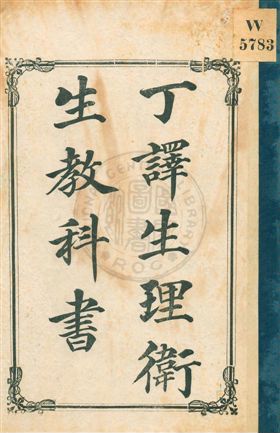 W
5783
丁譯生理衛
生教科書